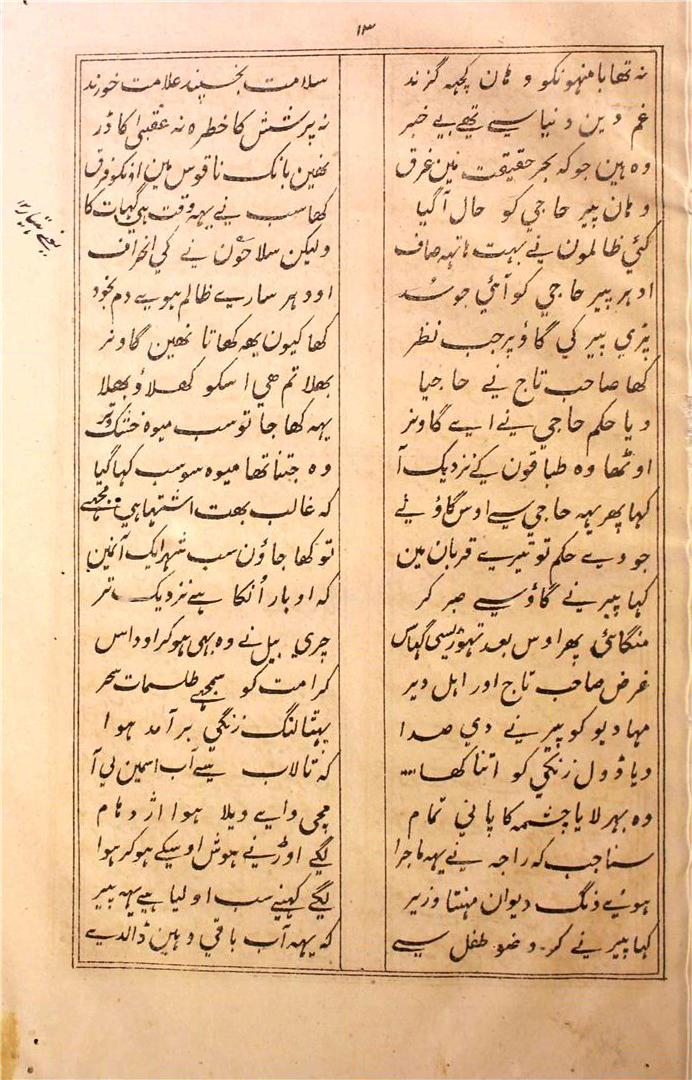 ۱۳
نہ تھا باممنہونکو وہان کچہہ گزند سلامت بخسپند علامت خورند
غم دین دنیا سے تھے بے خبر نہ پرشش کا خطرہ نہ عقبیٰ کا ڈر
وہ ہین جو کہ بحر حقیقت مین غرق نھین بانک ناقوس مین انکو فرق
وہان پیر حاجی کو حال آ گیا کھا سب نے یہہ وقت ہی گہات کا
کئی ظالمون نے بہت ہاتہہ صاف ولیکن سلاحون نے کی انحراف
ادہر پیر حاجی کو آئی جو سُد اودہر سارے ظالم ہویے دم بخود
پڑی پیر کی گاؤ پر جب نظر کھا کیون یھ کھاتا نھین گاونر
کھا صاحب تاج نے حاجیا بھلا تم ھی اسکو کھلاؤ بھلا
دیا حکم حاجی نے ایے گاونر یہہ کھا جا تو سب میوہ خشک وتر
اوٹھا وہ طباقون کے نزدیک آ وہ جتنا تھا میوہ سو سب کہا گیا
کہا پھر یہہ حاجی سے اوس گاؤ نے کہ غالب بھت اشتہا ہی مجھے
جو دے حکم تو تیرے قربان مین تو کھا جاؤن سب شہر ایک آن مین
کہا پیر نے گاؤ سے صبر کر کہ ادبار اُنکا ہے نزدیک تر
منگائی پھر اوس بعد تہوڑیسی گہاس چری بیل نے وہ بہی ہوکر اوداس
غرض صاحب تاج اور اہل دیر کرامت کو سمجھے طلسمات سحر
مہادیو کو پیر نے دی صدا بہتالنگ زنگی برآمد ہوا
دیا ڈول زنگی کو اتنا کھا کہ تالاب سے آب اسمین لی آ
وہ بہر لایا چشمہ کا پانی تمام مچی وایے ویلا ہوا اژدہام
سنا جب کہ راجہ نے یہہ ماجرا لگے اوڑنے ہوش اوسکے ہوکر ہوا
ہویے دنگ دیوان مہنتا وزیر لگے کہنے سب اولیا ہے یہہ پیر
کہا پیر نے کر وضو طفل سے کہ یہہ آب باقی وہین ڈالدے